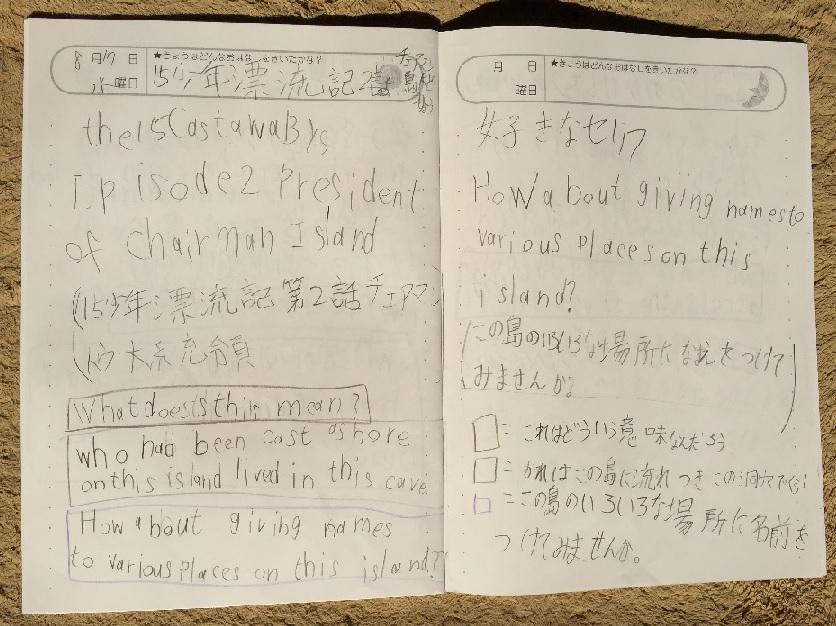 8月17日
水曜日
★きょうはどんなおはなしをきいたかな?
15少年漂流記2話
チェアマン
島
the15CastawaBys
Episode2 President
of Chairman Island
(15少年漂流記 第2話チェアマン
What doests this mean?
who had been cast ashore
on this island lived in this cave.
How about giving names
to various places on this island?
月 日
曜日
★きょうはどんなおはなしをきいたかな?
好きなセリフ
How about giving names to
various places on this
island?
(この島のいろいろな場所になまえをつけて
みませんか?)
□=これはどういう意味なんだろう
□=かれはこの島に流れつきこの洞穴で
□=この島のいろいろな場所に名前を
つけてみませんか。